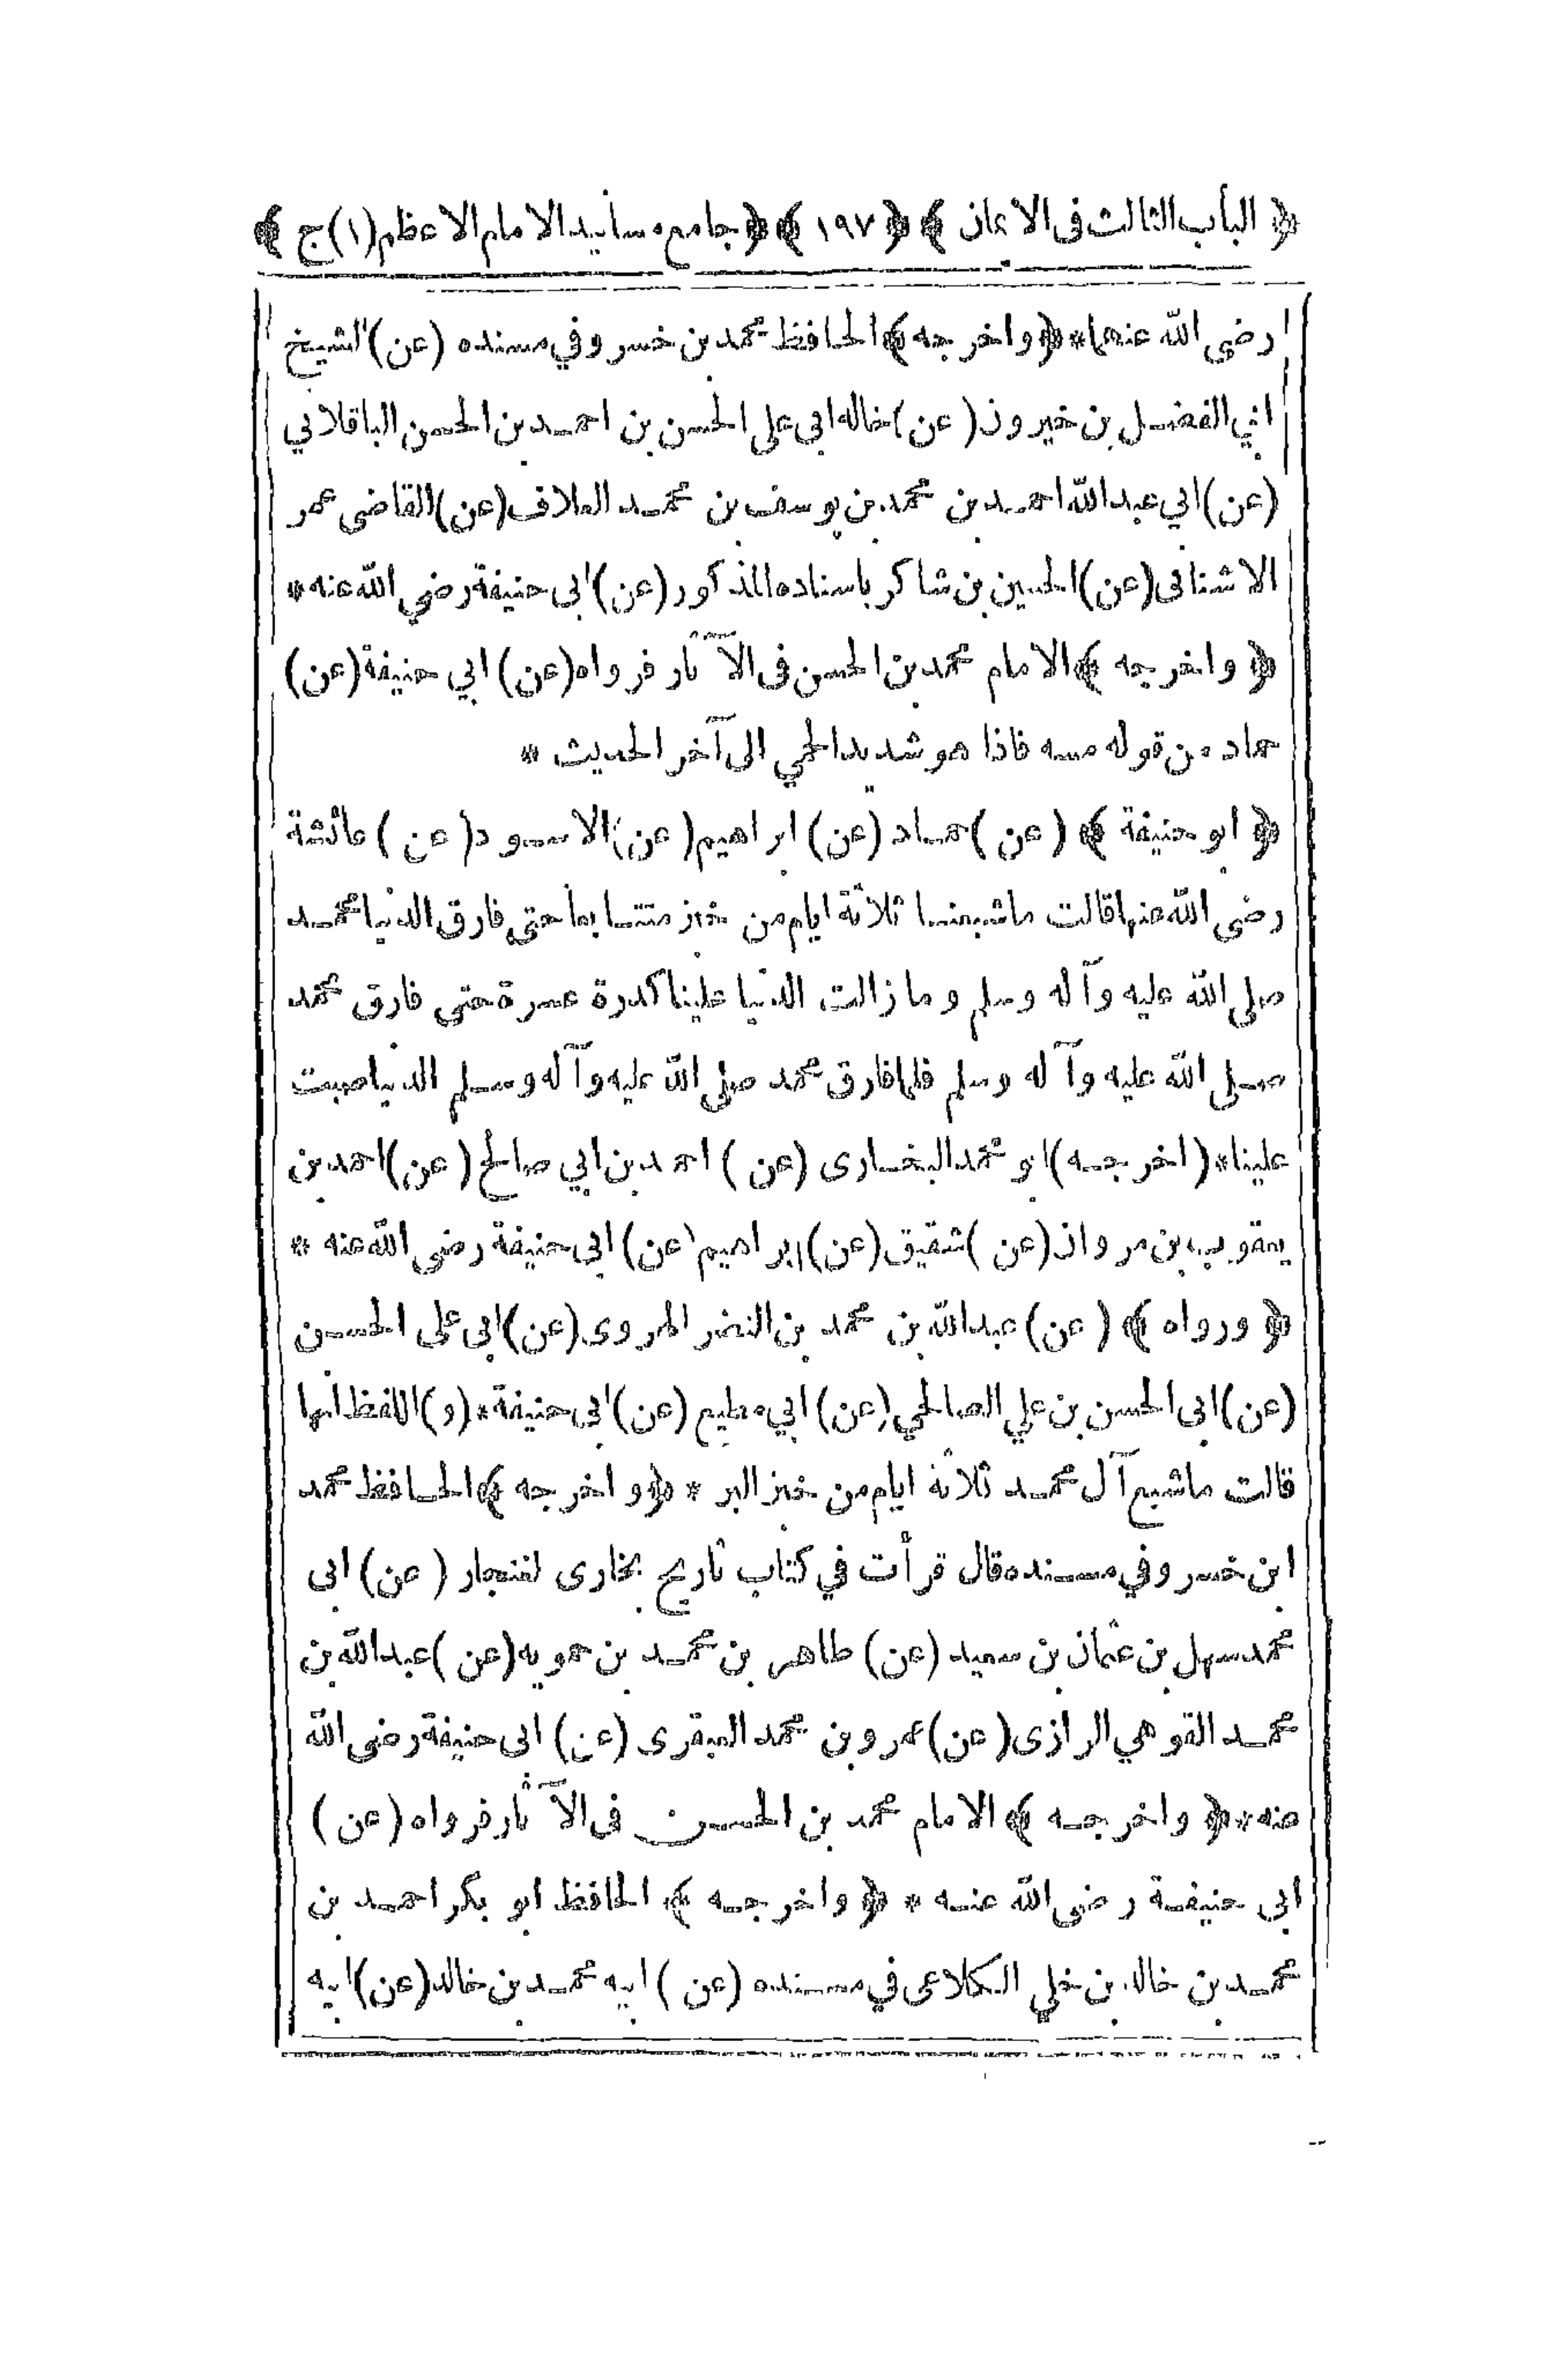 ﴿ الباب الثالث فى الايمان ﴾ ﴿ ١٩٧ ﴾ ﴿ جامع مسانيد الامام الاعظم (١) ج ﴾
رضى الله عنهما * ﴿ واخرجه ﴾ الحافظ محمد بن خسرو في مسنده (عن) الشيخ
ابي الفضل بن خيرون (عن) خاله ابى على الحسن بن احمد بن الحسن الباقلاني
(عن) ابي عبد الله احمد بن محمد بن يوسف بن محمد العلاف (عن) القاضى عمر
الاشنانى (عن) الحسين بن شاكر باسناده المذكور (عن) ابى حنيفة رضي الله عنه *
﴿ واخرجه ﴾ الامام محمد بن الحسن فى الآثار فرواه (عن) ابي حنيفة (عن)
حماد من قوله مسه فاذا هو شديد الحمي الى آخر الحديث *
﴿ ابو حنيفة ﴾ (عن) حماد (عن) ابراهيم (عن) الاسود (عن) عائشة
رضى الله عنها قالت ماشبعنا ثلاثة ايام من خبز متتابعا حتى فارق الدنيا محمد
صلى الله عليه وآله وسلم وما زالت الدنيا علينا كدرة عسرة حتى فارق محمد
صلى الله عليه وآله وسلم فلما فارق محمد صلى الله عليه وآله وسلم الدنيا صبت
علينا * (اخرجه) ابو محمد البخارى (عن) احمد بن ابي صالح (عن) احمد بن
يعقوب بن مروان (عن) شقيق (عن) ابراهيم (عن) ابى حنيفة رضى الله عنه *
﴿ ورواه ﴾ (عن) عبد الله بن محمد بن النضر الهروى (عن) ابى على الحسن
(عن) ابى الحسن بن علي الصالحي (عن) ابي مطيع (عن) ابى حنيفة * (و) اللفظ انها
قالت ماشبع آل محمد ثلاثة ايام من خبز البر * ﴿ واخرجه ﴾ الحافظ محمد
ابن خسرو في مسنده قال قرأت في كتاب تاريخ بخارى لغنجار (عن) ابى
محمد سهل بن عثمان بن سعيد (عن) طاهر بن محمد بن حمويه (عن) عبد الله بن
محمد القوهي الرازى (عن) عمرو بن محمد العبقرى (عن) ابى حنيفة رضى الله
عنه * ﴿ واخرجه ﴾ الامام محمد بن الحسن فى الآثار فرواه (عن)
ابى حنيفة رضى الله عنه * ﴿ واخرجه ﴾ الحافظ ابو بكر احمد بن
محمد بن خالد بن خلي الكلاعى في مسنده (عن) ابيه محمد بن خالد (عن) ابيه